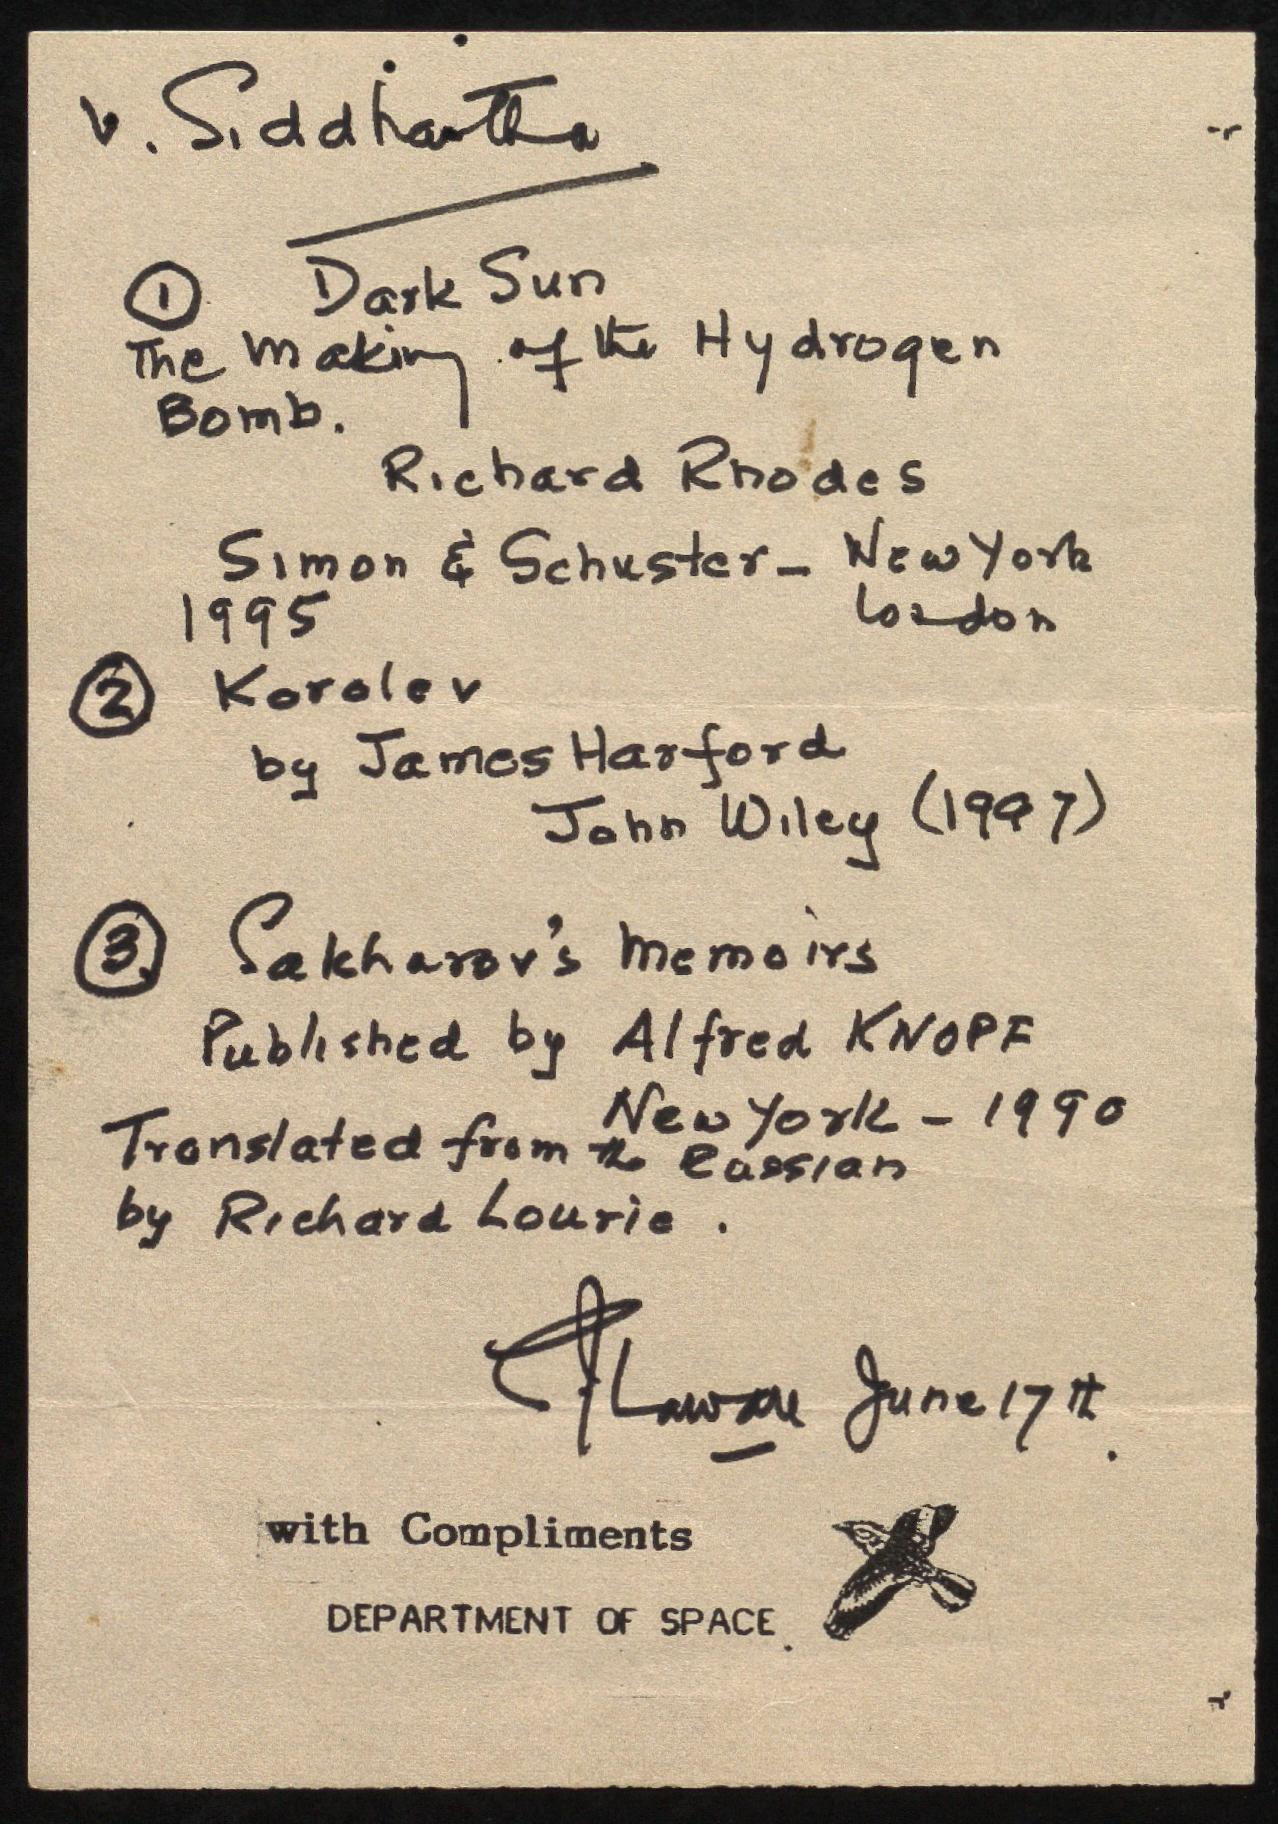 V. Siddhartha
① Dark Sun
The Making of the Hydrogen
Bomb.
Richard Rhodes
Simon & Schuster - New York
1995 London
② Korolev
by James Harford
John Wiley (1997)
③ Sakharov's Memoirs
Published by Alfred KNOPF
New York - 1990
Translated from the Russian
by Richard Lourie.
June 17th.
with Compliments
DEPARTMENT OF SPACE